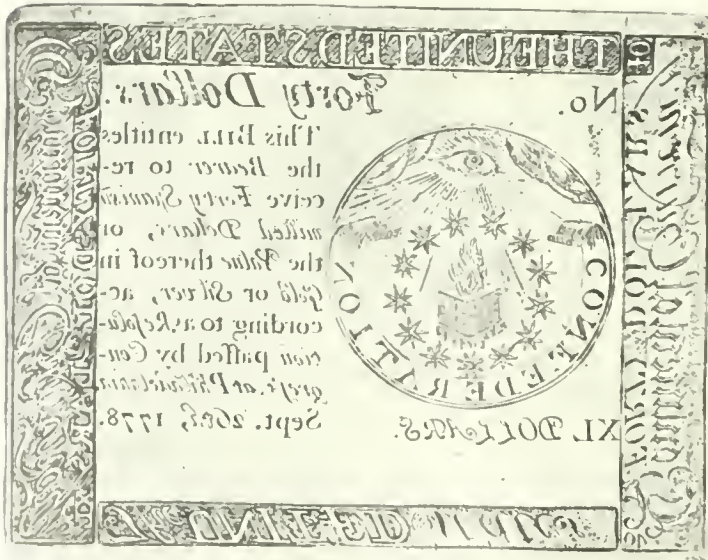 THE UNITED STATES
OF
No. Forty Dollars.
This BILL entitles
the Bearer to re-
ceive Forty Spanish
milled Dollars, or
the Value thereof in
Gold or Silver, ac-
cording to a Resolu-
tion passed by Con-
gress, at Philadelphia,
Sept. 26th, 1778.
CONFEDERATION
XL DOLLARS.
FORTY DOLLARS
Continental Currency